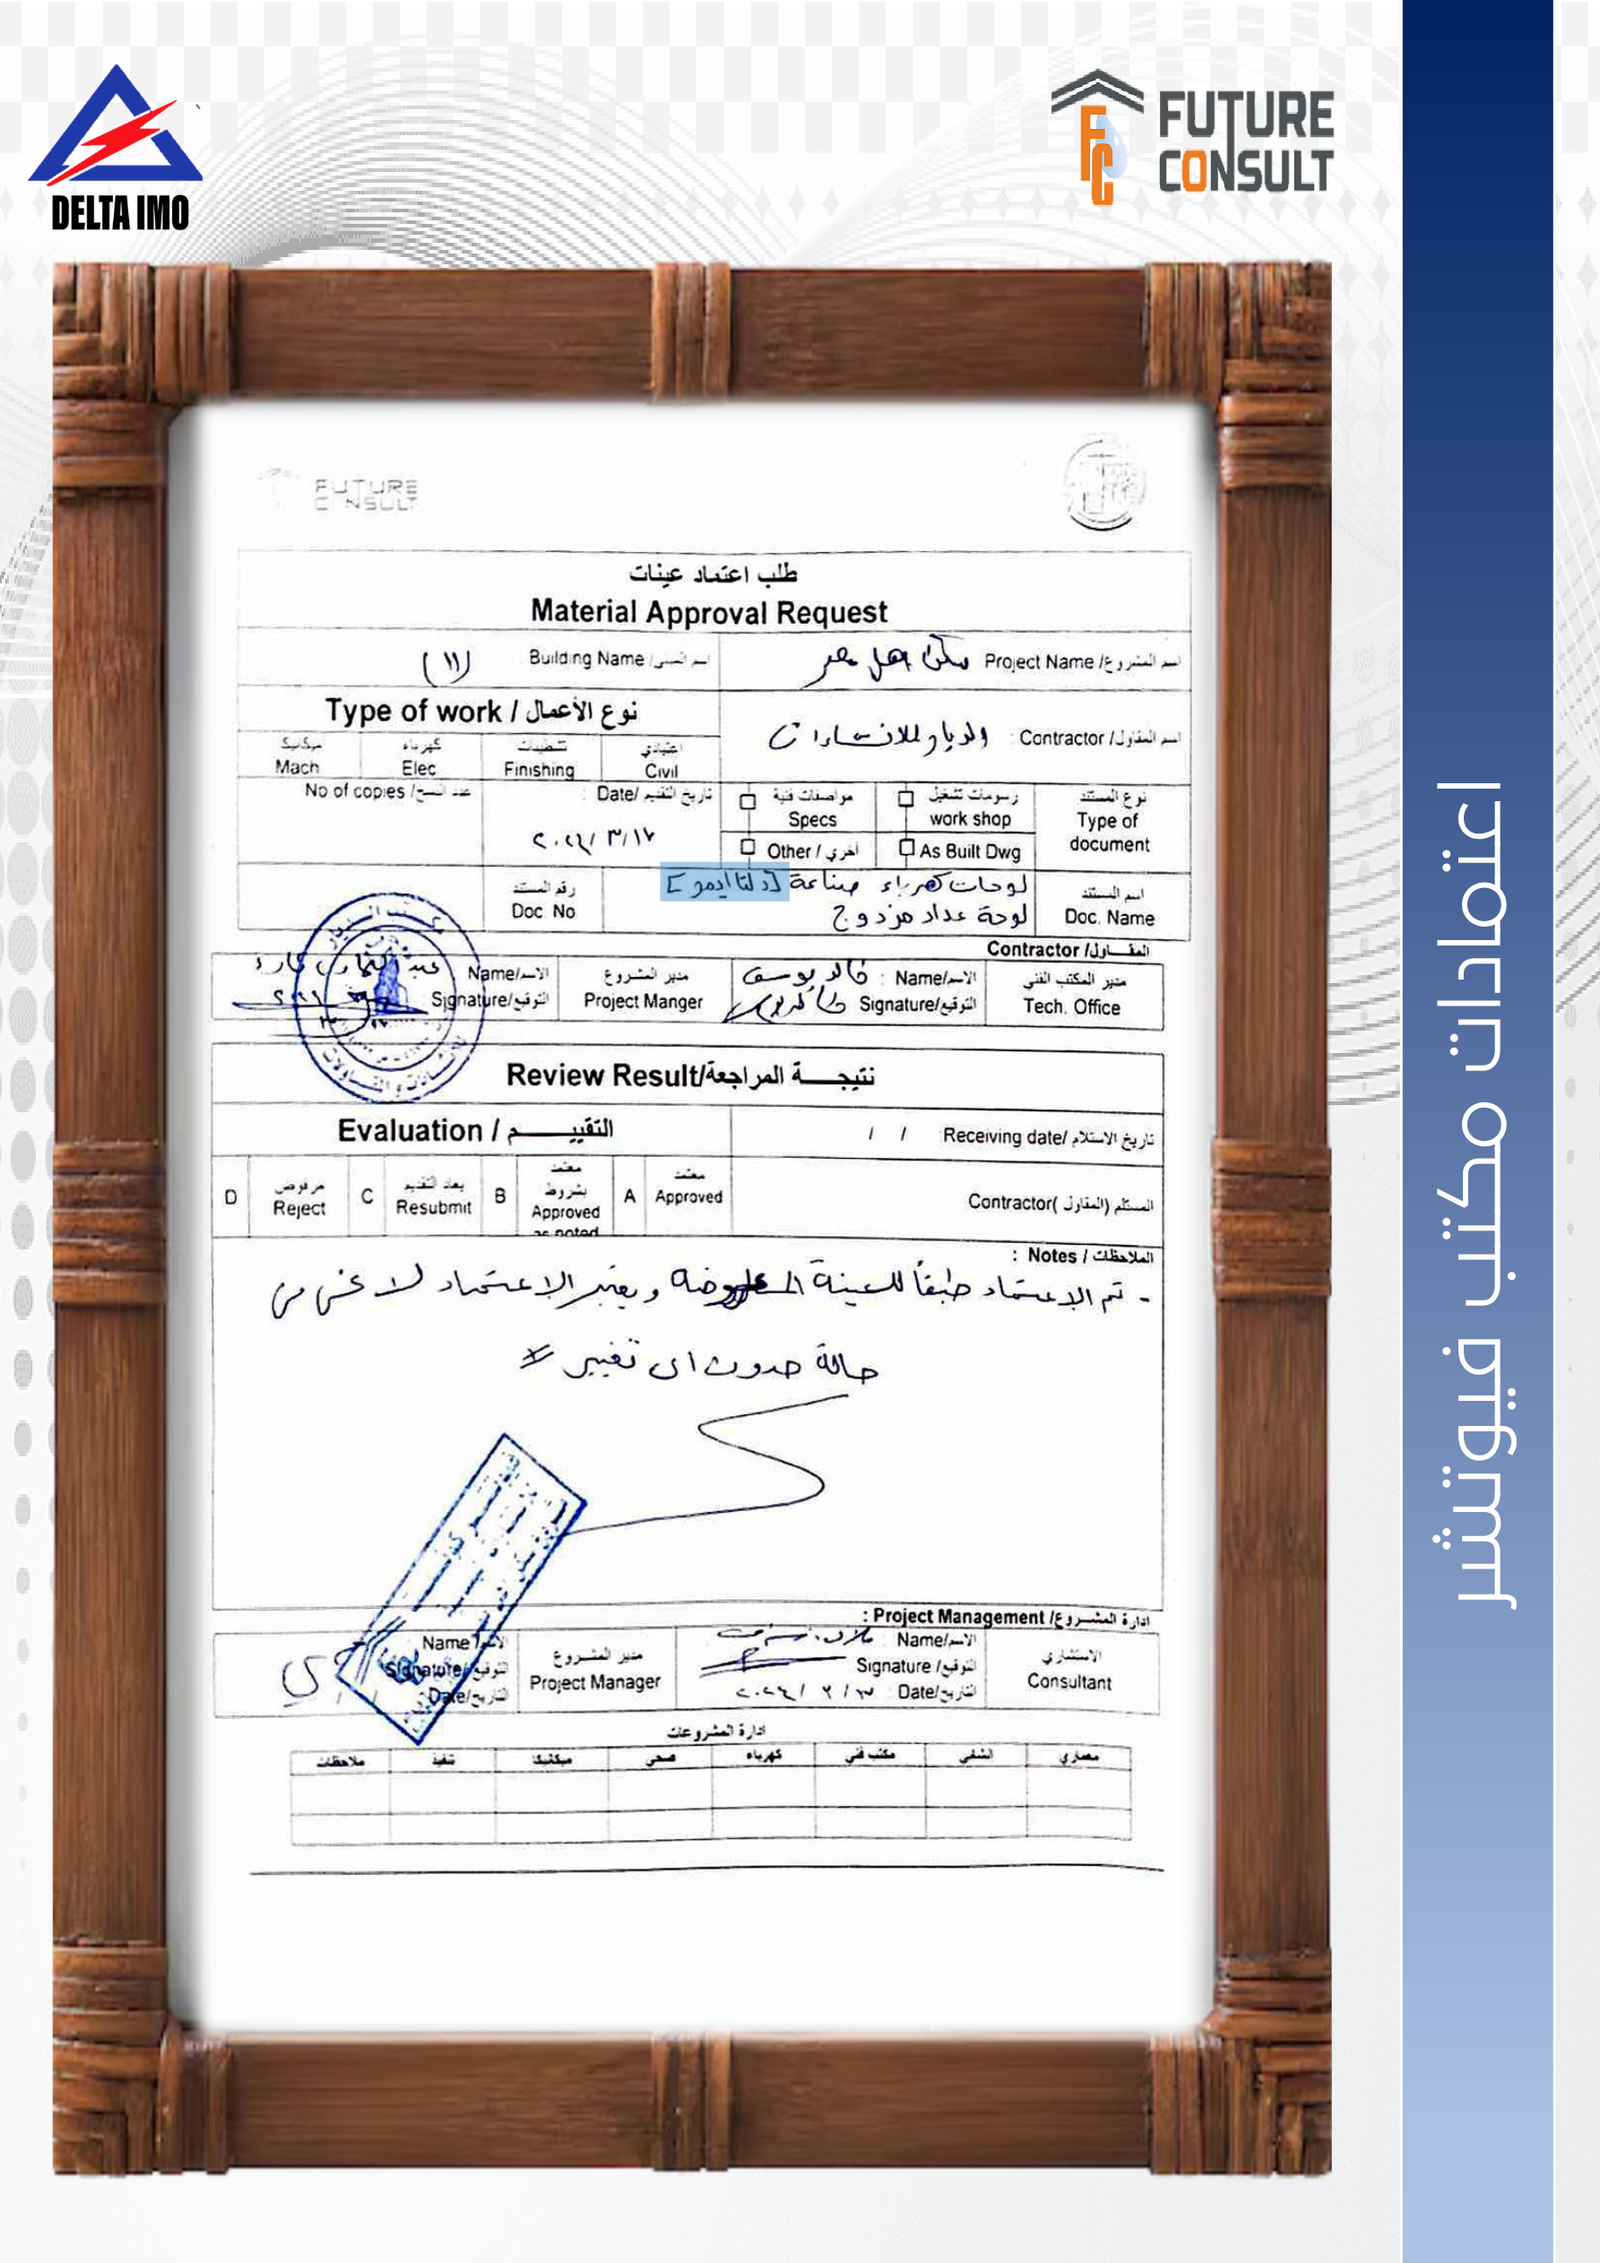 DELTA IMO
FUTURE
CONSULT
اعتمادات مكتب فيوتشر
FUTURE
CONSULT
طلب اعتماد عينات
Material Approval Request
اسم المشروع/ Project Name سكن اهل مصر
اسم المبنى/ Building Name (١١)
اسم المقاول/ Contractor : الديار للانشاءات
Type of work / نوع الأعمال
اعتيادي
Civil
تشطيبات
Finishing
كهرباء
Elec
ميكانيك
Mach
نوع المستند
Type of
document
رسومات تشغيل
work shop
مواصفات فنية
Specs
As Built Dwg
Other / أخري
تاريخ التقديم /Date :
عدد النسخ/ No of copies
اسم المستند
Doc. Name
لوحات كهرباء صناعة [دلتا ايمو]
لوحة عداد مزدوج
رقم المستند
Doc. No
المقاول/ Contractor
مدير المكتب الفني
Tech. Office
الاسم/Name : خالد يوسف
التوقيع/Signature
مدير المشروع
Project Manger
الاسم/Name
التوقيع/Signature
نتيجة المراجعة/Review Result
تاريخ الاستلام /Receiving date: / /
Evaluation / التقييم
المستلم (المقاول )Contractor
معتمد
Approved
A
معتمد
بشروط
Approved
as noted
B
يعاد التقديم
Resubmit
C
مرفوض
Reject
D
الملاحظات / Notes :
- تم الاعتماد طبقاً للعينة المعروضه ويعتبر الاعتماد لاغى من
حالة حدوث اى تغيير
ادارة المشروع/ Project Management :
الاستشاري
Consultant
الاسم/Name
التوقيع/ Signature
التاريخ/Date :
مدير المشروع
Project Manager
الاسم/ Name
التوقيع/ Signature
التاريخ/Date
ادارة المشروعات
معماري
انشائي
مكتب فني
كهرباء
صحي
ميكانيكا
تنفيذ
ملاحظات